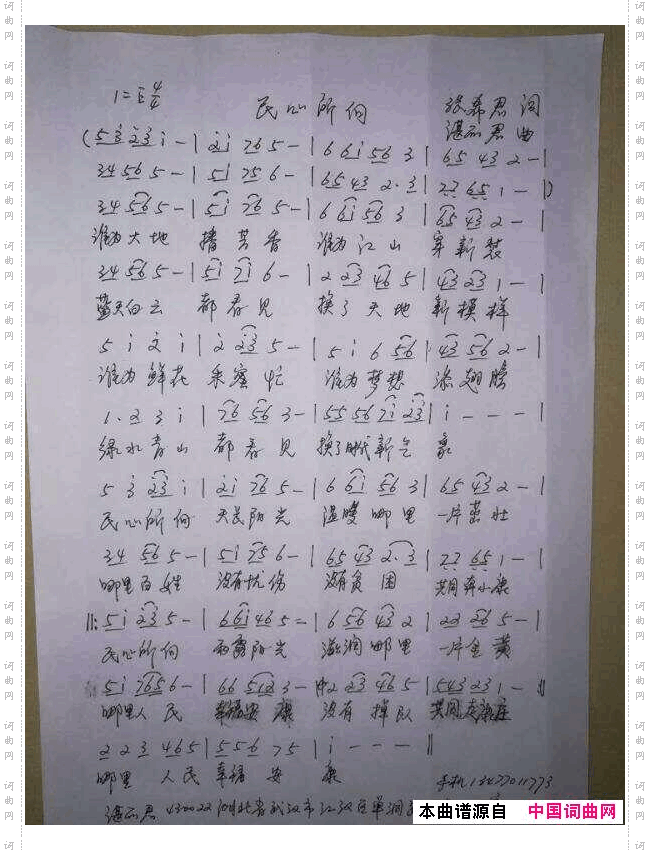 1=E 4/4
民心所向
张希君 词
湛丕君 曲
(5 3 2 3 i - | 2 i 7 6 5 - | 6 6 i 5 6 3 | 6 5 4 3 2 - |
3 4 5 6 5 - | 5 i 7 5 6 - | 6 5 4 3 2 · 3 | 7 7 6 5 1 - |)
3 4 5 6 5 - | 5 i 7 6 5 - | 6 6 i 5 6 3 | 6 5 4 3 2 - |
谁为大地 播芬香 谁为江山 穿新装
3 4 5 6 5 - | 5 i 7 i 6 - | 2 2 3 4 6 5 | 4 3 2 3 1 - |
蓝天白云 都看见 换了天地 新模样
5 i 2 i | 2 2 3 5 - | 5 i 6 5 6 | 4 3 5 6 2 - |
谁为鲜花 采蜜忙 谁为梦想 添翅膀
1 · 2 3 i | 7 6 5 6 3 - | 5 5 5 6 7 i 2 3 | i - - - |
绿水青山 都看见 换了时代新气 象
5 3 2 3 i | 2 i 7 6 5 - | 6 6 i 5 6 3 | 6 5 4 3 2 - |
民心所向 阳光 温暖哪里 一片茁壮
3 4 5 6 5 - | 5 i 7 5 6 - | 6 5 4 3 2 · 3 | 7 7 6 5 1 - |
哪里百姓 没有忧伤 没有贫困 共同奔小康
||: 5 i 2 3 5 - | 6 6 i 4 6 5 - | 6 5 6 4 3 2 | 2 2 2 6 5 - |
民心所向 雨露阳光 滋润哪里 一片金黄
5 i 7 6 5 6 - | 6 6 5 1 2 3 - | 2 2 3 4 6 5 | 5 4 3 2 3 1 - :||
哪里人民 幸福安康 没有掉队 共同
2 2 3 4 6 5 | 5 5 6 7 5 | i - - - ||
哪里 人民 幸福 安 康
手机 13477011773
湛丕君 430022 湖北省武汉市江汉区单洞
本曲谱源自 中国词曲网
词曲网